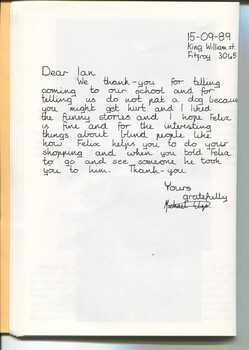 15-09-89
King William st.
Fitzroy 3065
Dear Ian
We thank-you for telling
coming to our school and for
telling us do not pat a dog because
you might get hurt and I liked
the funny stories and I hope Felix
is fine and for the interesting
things about blind people like
how Felix helps you to do your
shopping and when you told Felix
to go and see someone he took
you to him. Thank-you
Yours
gratefully
Michael